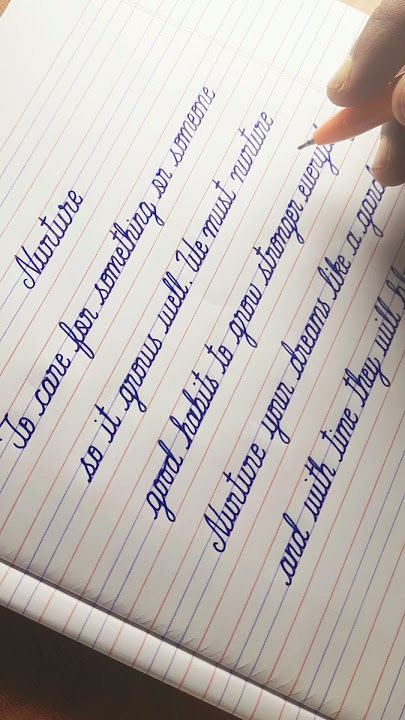 Nurture
To care for something or someone
so it grows well. We must nurture
good habits to grow stronger
Nurture your dreams like a
and with time they will